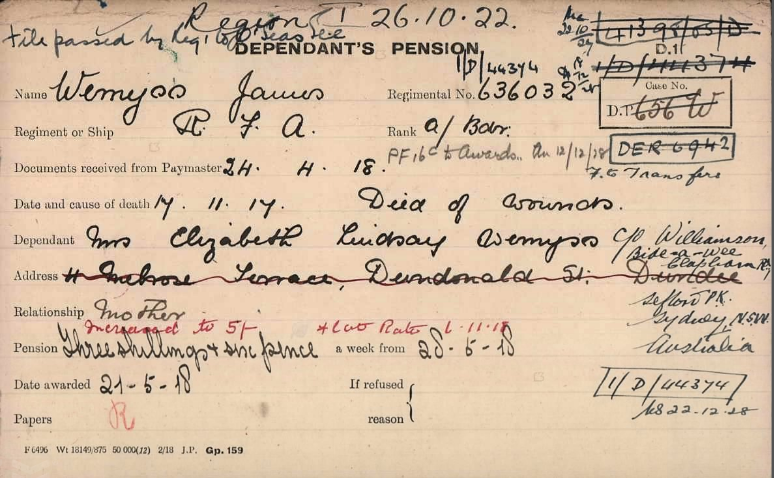 Region 1 26.10.22.
File passed by Reg. to O'Seas See
DEPENDANT'S PENSION.
1/D/44374
41395/03/D
D.1
1/D/44374
Name Wemyss James
Regimental No. 636032
Case No.
D.P. 656 W
Regiment or Ship R. F. A.
Rank a/Bdr.
DER 6942
F. to Transfers
Documents received from Paymaster 24. 4. 18.
PF,16c to Awards.. 12/12/28
Date and cause of death 17. 11. 17. Died of wounds.
Dependant Mrs Elizabeth Lindsay Wemyss
c/o Williamson,
Bide-a-Wee
Clapham Rd
Address 4 Melrose Terrace, Dundonald St. Dundee
Sefton PK.
Sydney, N.S.W.
Australia
Relationship Mother
Increased to 5/- Rate 6-11-18
Pension Three shillings & sixpence a week from 28-5-18
Date awarded 21-5-18
If refused
reason
1/D/44374
22.12.28
Papers R
F 6496 Wt 18149/875 50 000(12) 2/18 J.P. Gp. 159